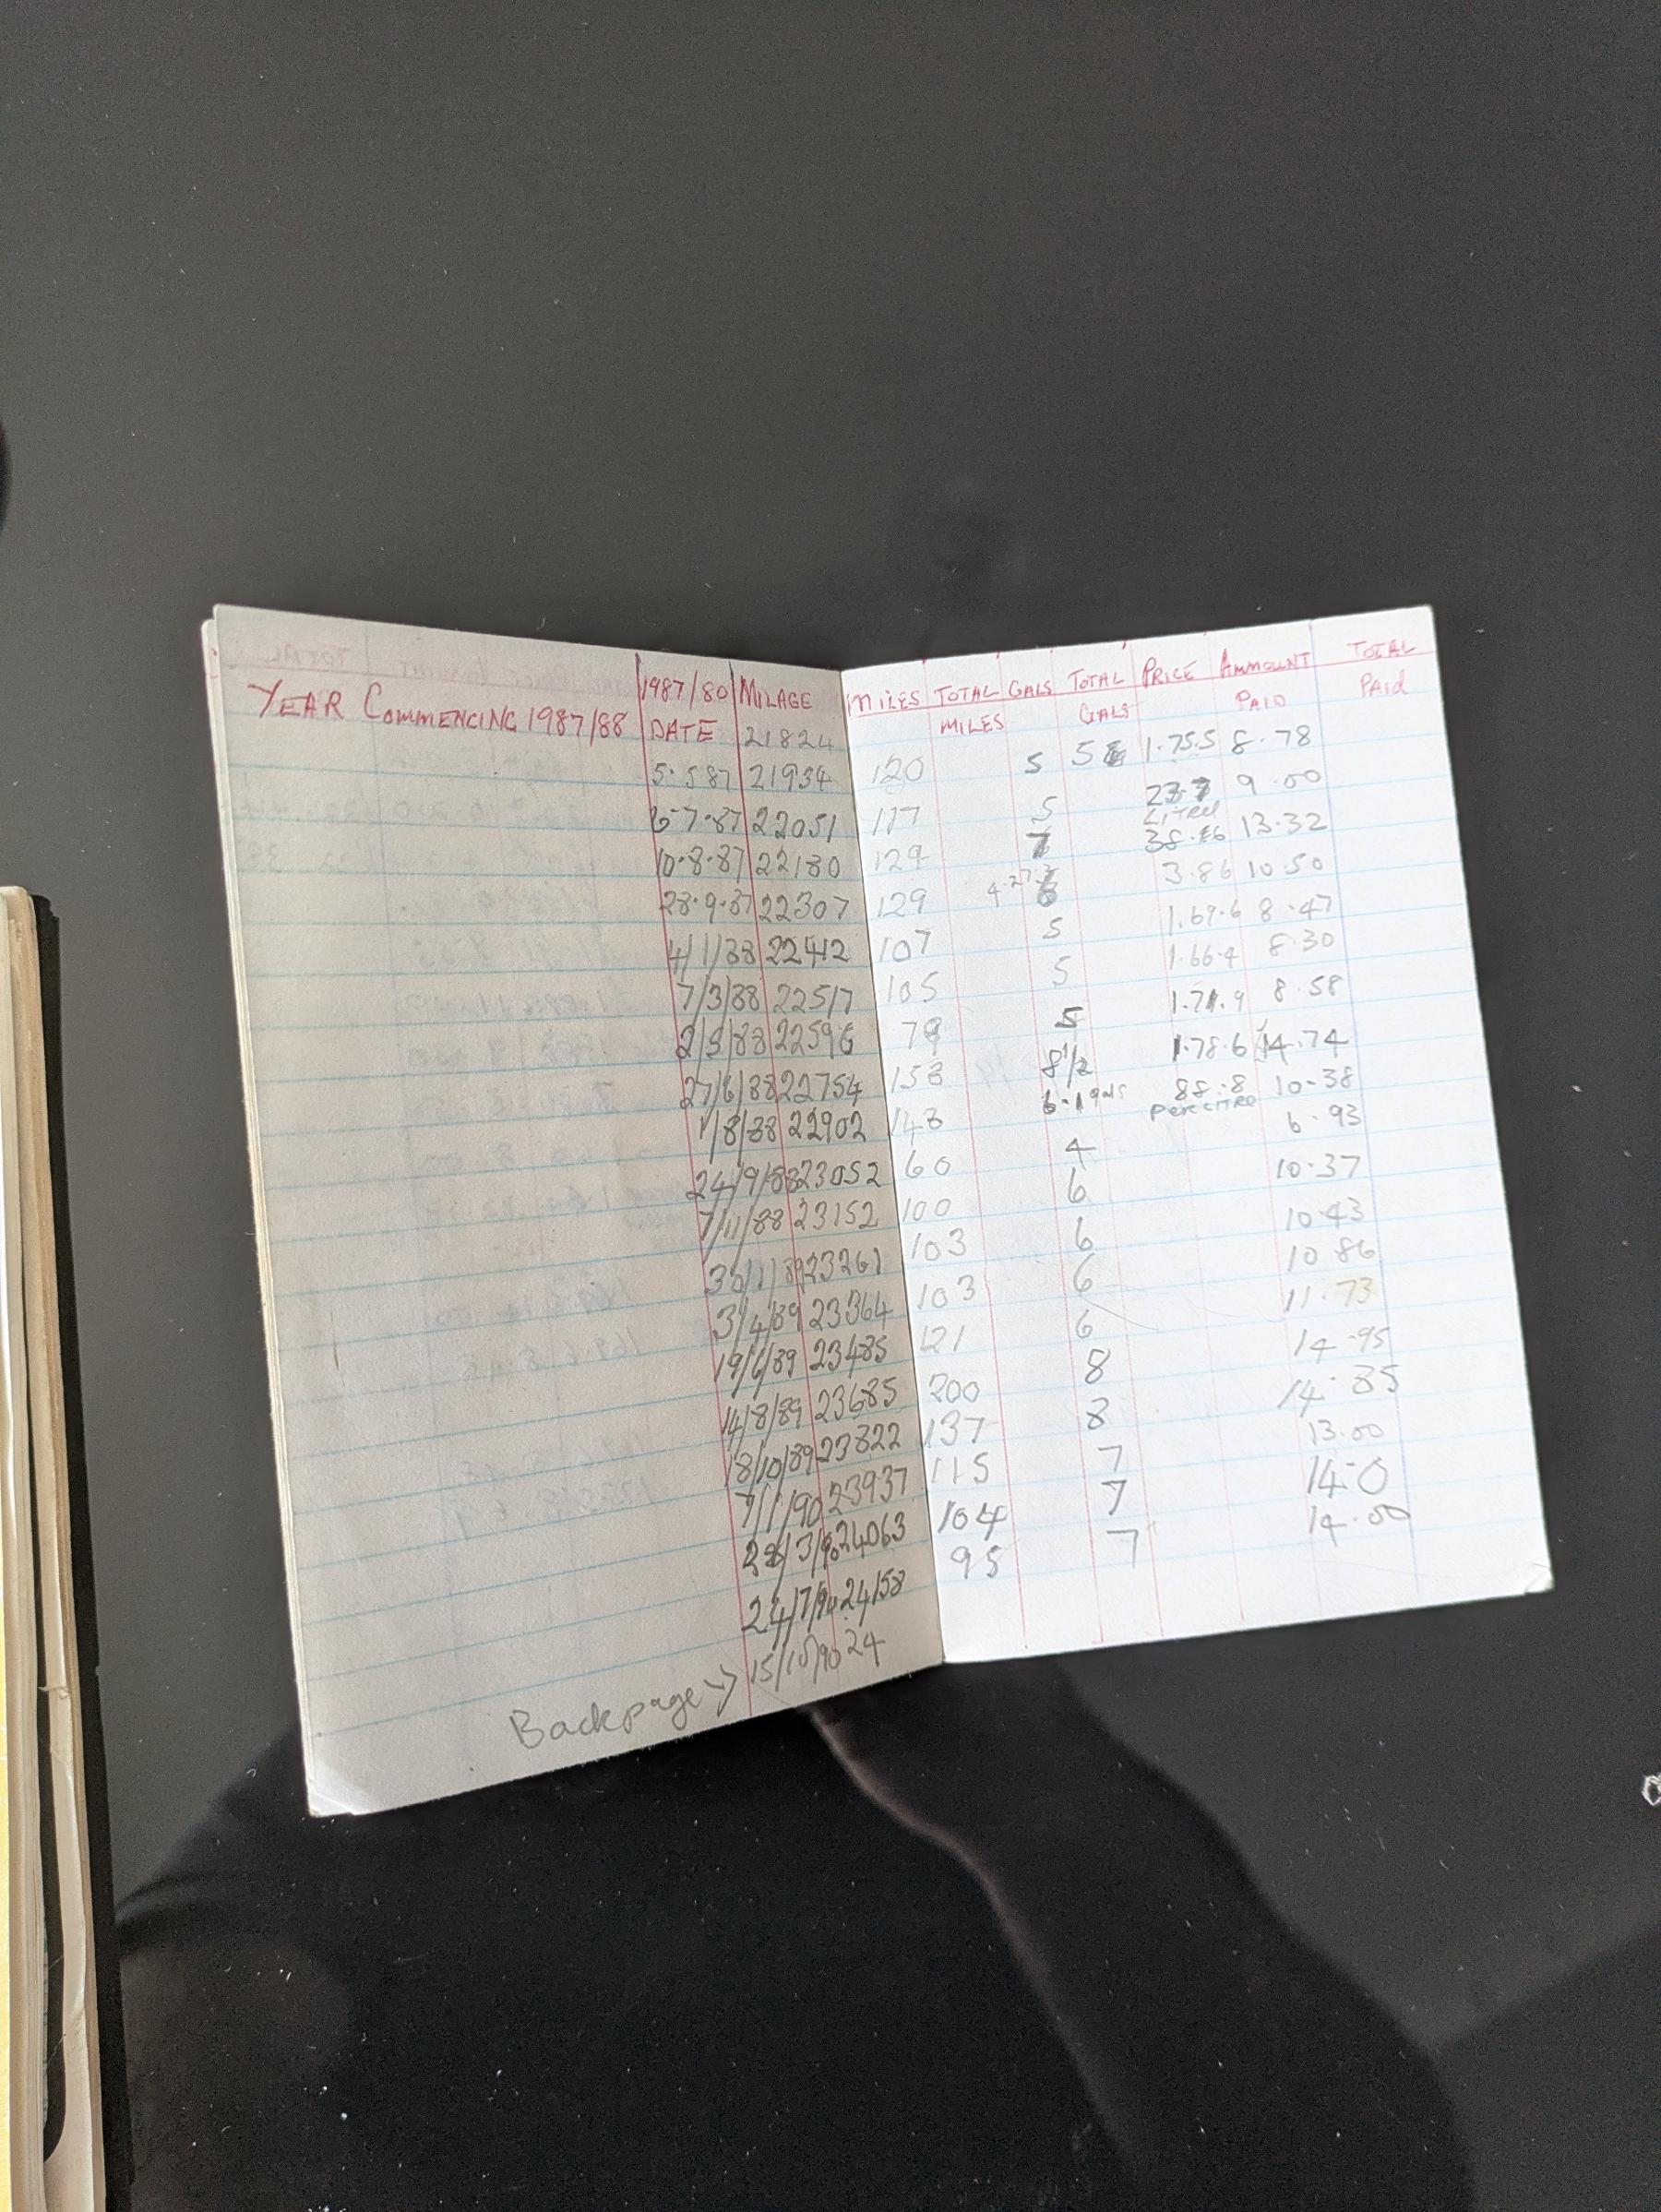 YEAR COMMENCING 1987/88 1987/80 MILAGE MILES TOTAL GALS TOTAL PRICE AMMOUNT TOTAL
DATE 21824 MILES GALS PAID PAId
5.5 87 21934 120 5 5 1.75.5 8.78
6-7-87 22051 117 5 9.00
LITRES
10.8.87 22180 129 7 13.32
28.9.87 22307 129 6 3.86 10 50
4/1/88 22412 107 5 1.69.6 8.47
7/3/88 22517 105 5 1.66.4 8.30
2/5/88 22596 79 5 1.71.9 8.58
27/6/88 22754 158 8 1/2 1.78.6 14.74
1/8/88 22902 148 6.1 gals 88.8 10-38
per litre
24/9/88 23052 60 4 6.93
7/11/88 23152 100 6 10.37
30/1/89 23261 103 6 10.43
3/4/89 23364 103 6 10 86
19/6/89 23485 121 6 11.73
14/8/89 23685 200 8 14.95
18/10/89 23822 137 8 14.85
7/1/90 23937 115 7 13.00
24063 104 7 14-0
24/7/90 24158 95 7 14.00
Backpage → 15/10/90 24